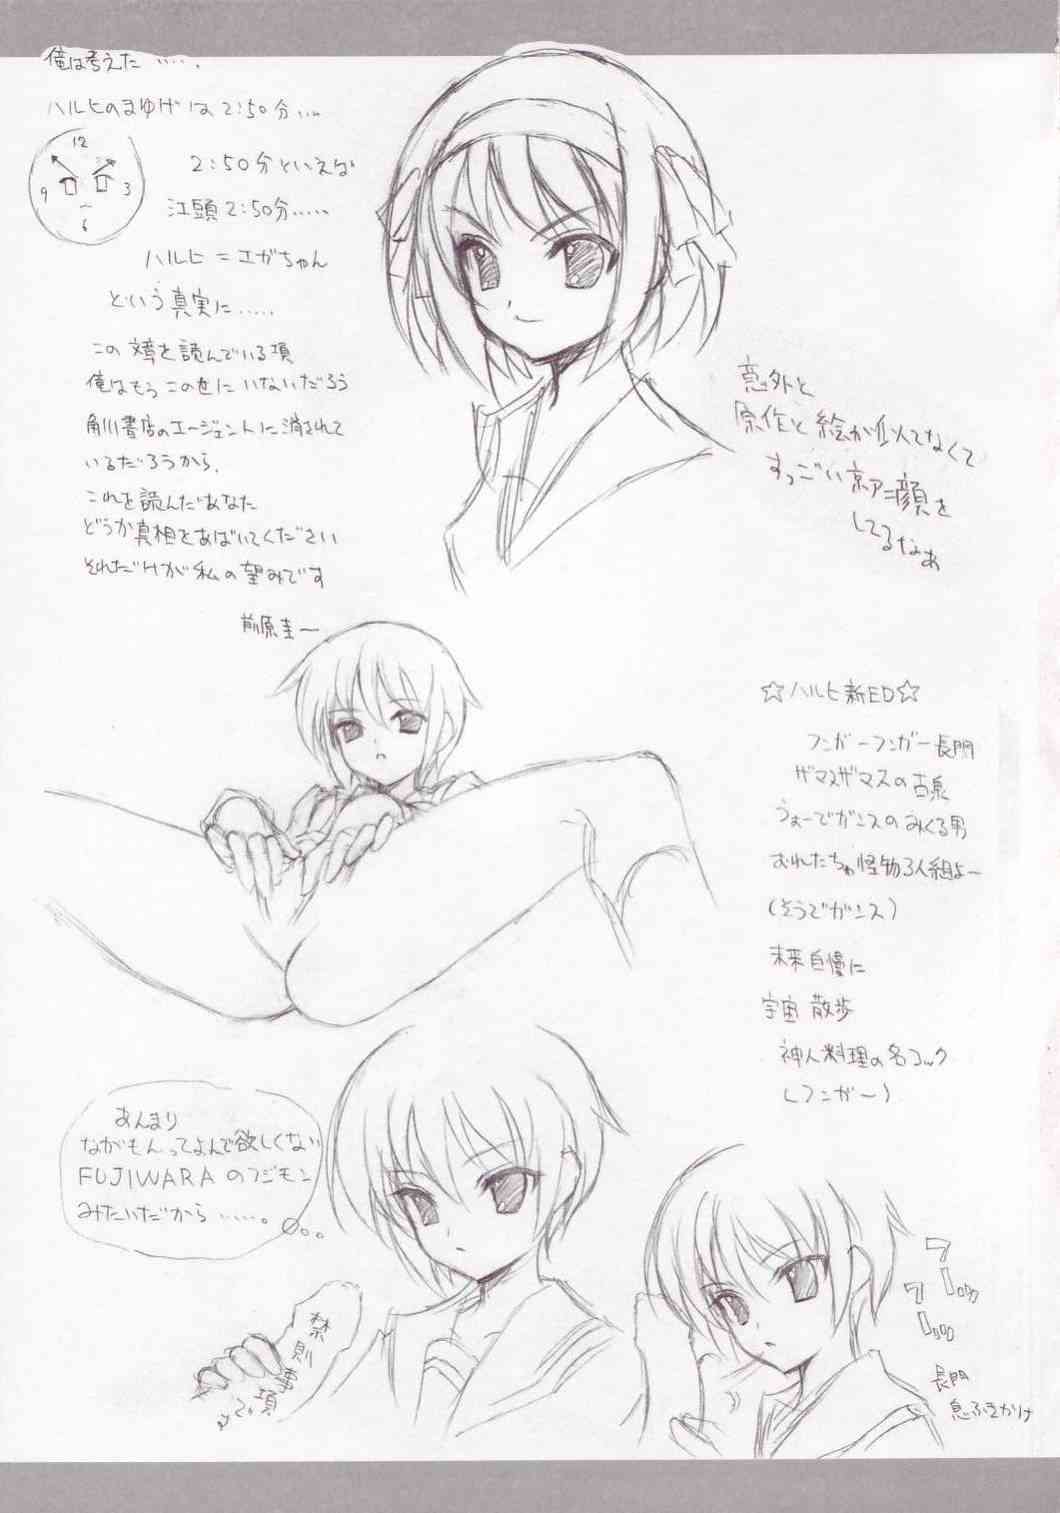 俺は考えた‥‥.
ハルヒのまゆげは2:50分…
12
9
3
6
2:50分といえば
江頭2:50分‥‥
ハルヒ=エガちゃん
という真実に‥‥
この文章を読んでいる項
俺はもうこの世にいないだろう
角川書店のエージェントに消されて
いるだろうから.
これを読んだあなた
どうか真相をあばいてください
それだけが私の望みです
前原圭一
意外と
原作と絵が似てなくて
すっごい京アニ顔を
してるなぁ
☆ハルヒ新ED☆
フンガーフンガー長門
ザマスザマスの古泉
うぉーでガンスのみくる男
おれたちゃ怪物3人組よー
(そうでガンス)
未来自慢に
宇宙散歩
神人料理の名コック
(フンガー)
あんまり
ながもんってよんで欲しくない
FUJIWARAのフジモン
みたいだから‥‥。
禁則事項
長門
息ふきかけ